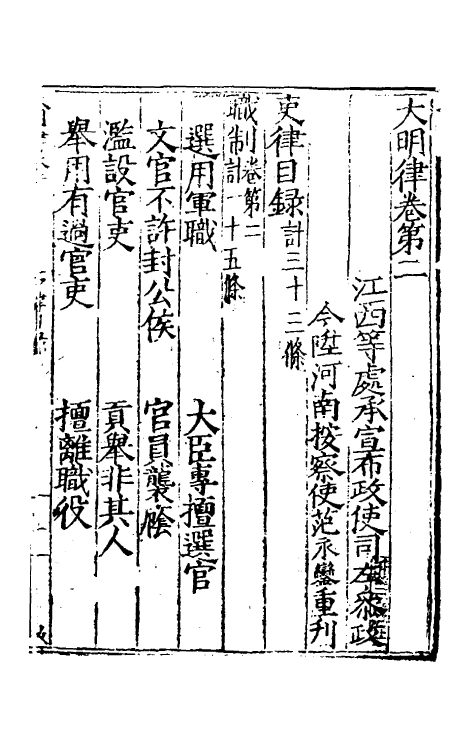 大明律卷第二
江西等處承宣布政使司左叅政
今陞河南按察使范永鑾重刋
吏律目錄計三十三條
職制卷第二
職制計一十五條
選用軍職　大臣專擅選官
文官不許封公侯　官員襲廕
濫設官吏　貢舉非其人
舉用有過官吏　擅離職役